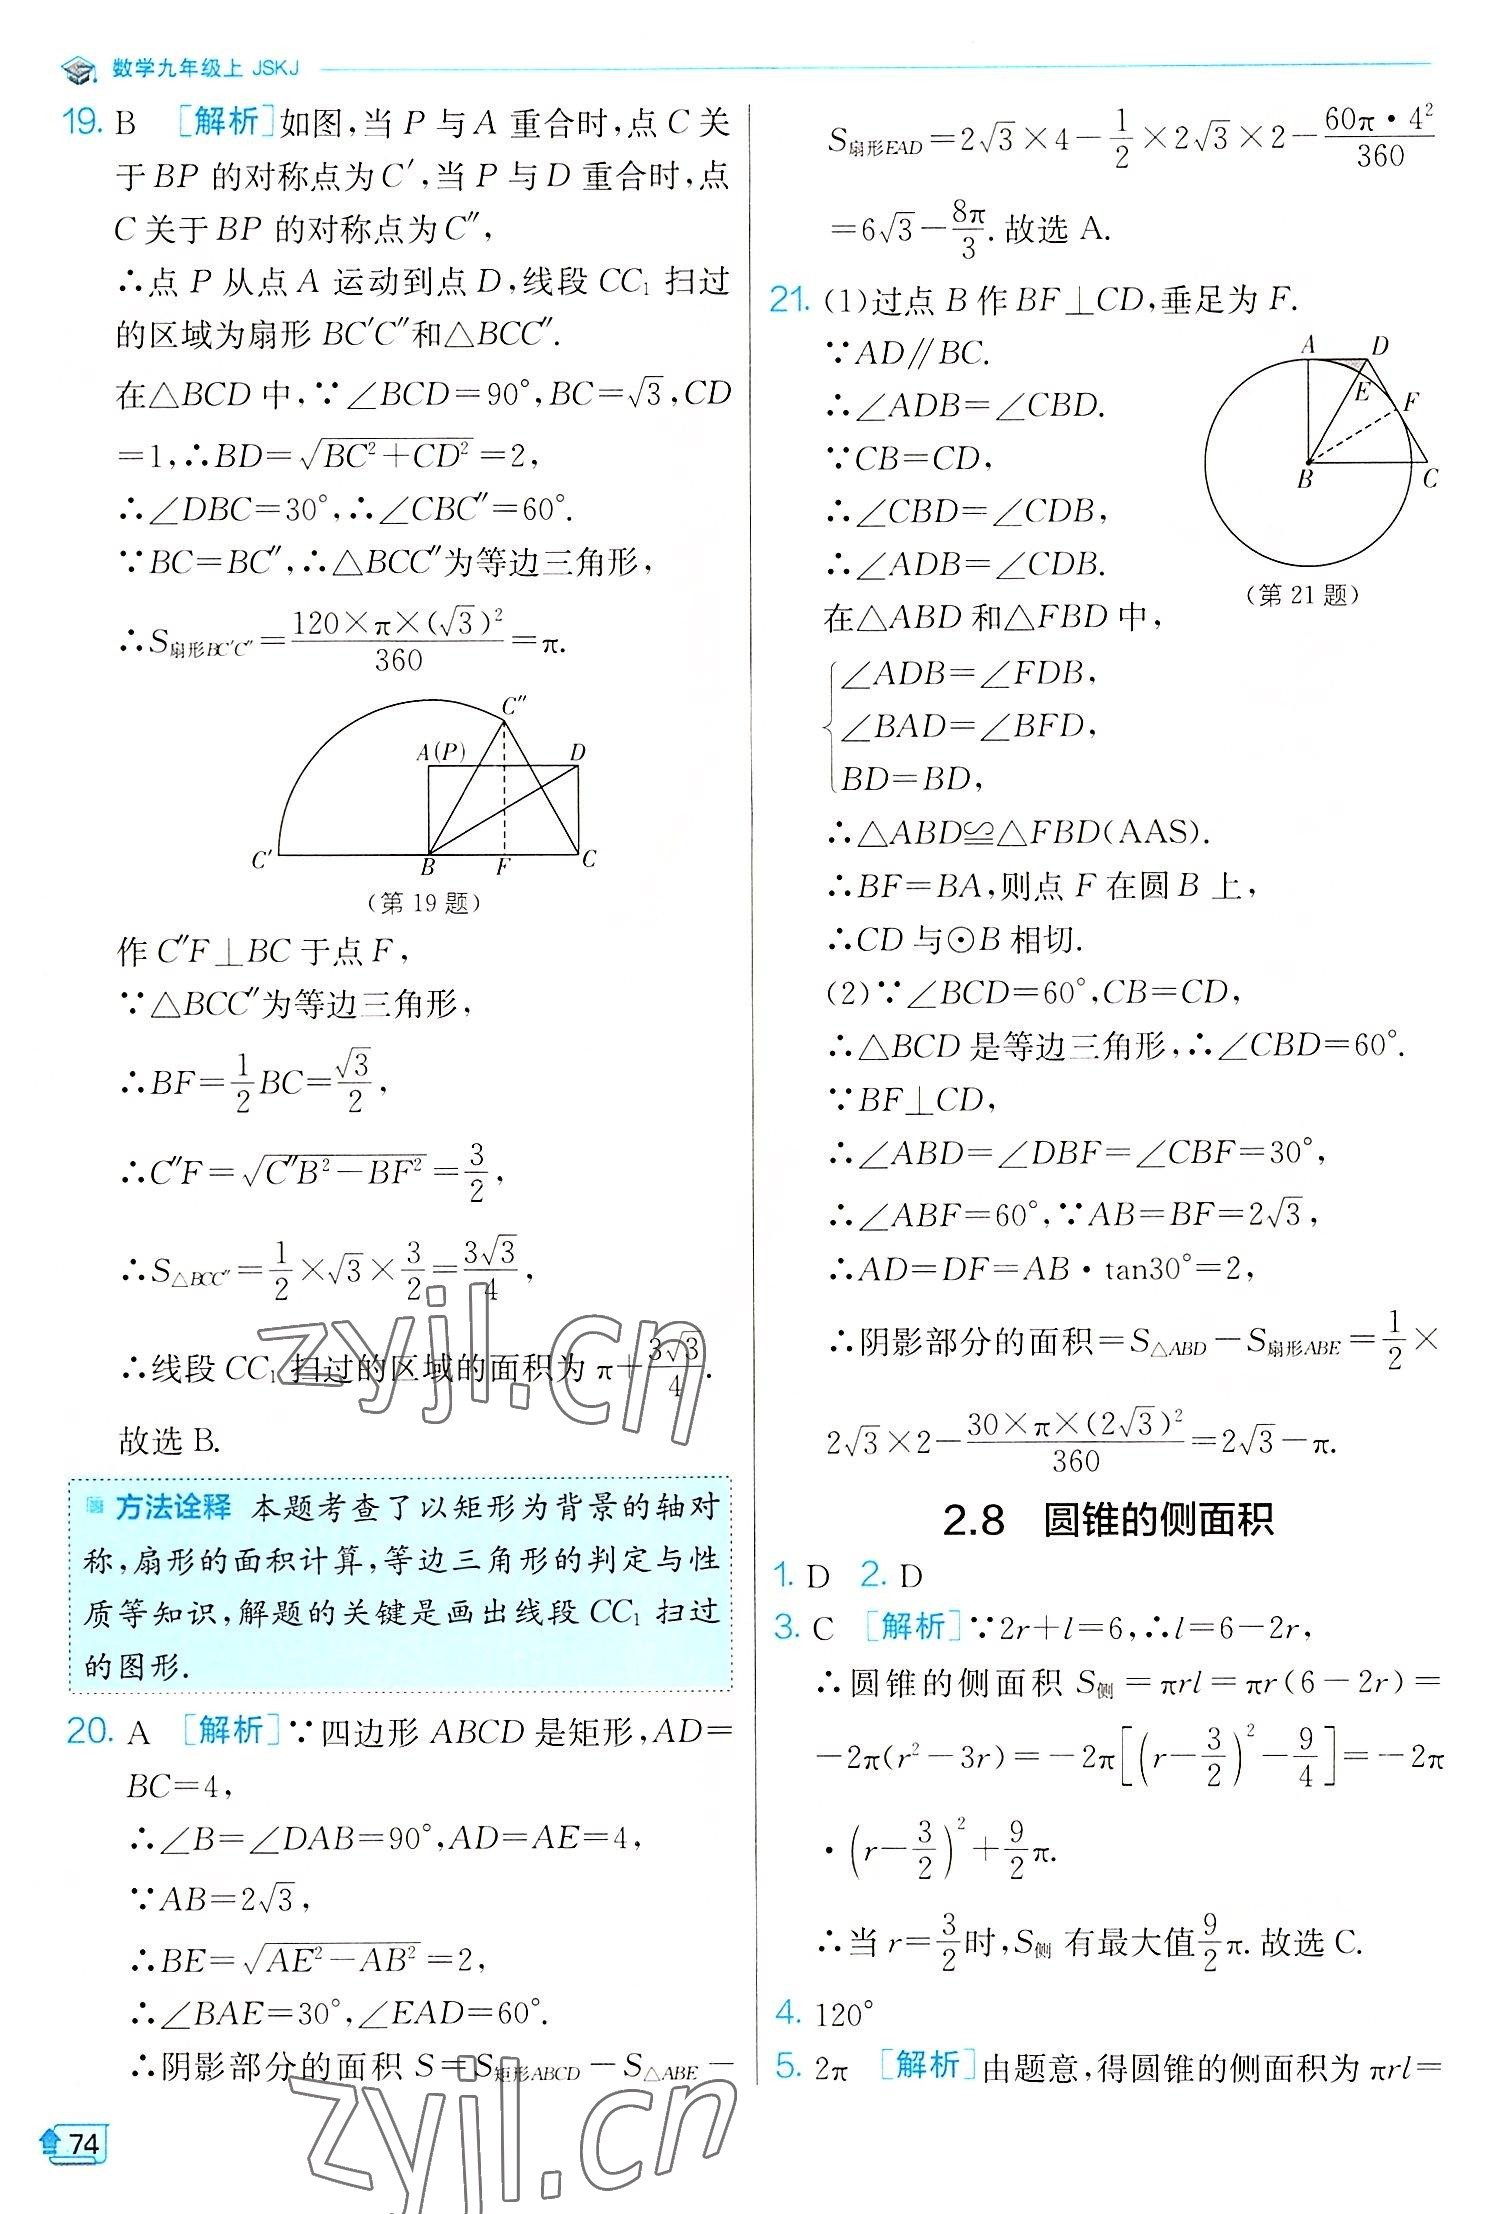 数学九年级上 JSKJ
19. B [解析]如图,当 P 与 A 重合时,点 C 关
于 BP 的对称点为 C′,当 P 与 D 重合时,点
C 关于 BP 的对称点为 C″,
∴点 P 从点 A 运动到点 D,线段 CC₁ 扫过
的区域为扇形 BC′C″和△BCC″.
在△BCD 中,∵∠BCD=90°,BC=√3,CD
=1,∴BD=√(BC²+CD²)=2,
∴∠DBC=30°,∴∠CBC″=60°.
∵BC=BC″,∴△BCC″为等边三角形,
∴S扇形BC′C″=120×π×(√3)²/360=π.
C″
A(P) D
C′ B F C
(第 19 题)
作 C″F⊥BC 于点 F,
∵△BCC″为等边三角形,
∴BF=1/2 BC=√3/2,
∴C″F=√(C″B²-BF²)=3/2,
∴S△BCC″=1/2×√3×3/2=3√3/4,
∴线段 CC₁ 扫过的区域的面积为 π+3√3/4.
故选 B.
方法诠释 本题考查了以矩形为背景的轴对
称,扇形的面积计算,等边三角形的判定与性
质等知识,解题的关键是画出线段 CC₁ 扫过
的图形.
20. A [解析]∵四边形 ABCD 是矩形,AD=
BC=4,
∴∠B=∠DAB=90°,AD=AE=4,
∵AB=2√3,
∴BE=√(AE²-AB²)=2,
∴∠BAE=30°,∠EAD=60°.
∴阴影部分的面积 S=S矩形ABCD-S△ABE-
S扇形EAD=2√3×4-1/2×2√3×2-60π·4²/360
=6√3-8π/3.故选 A.
21. (1)过点 B 作 BF⊥CD,垂足为 F.
∵AD∥BC.
∴∠ADB=∠CBD.
∵CB=CD,
∴∠CBD=∠CDB,
∴∠ADB=∠CDB.
在△ABD 和△FBD 中,
A D
E F
B C
(第 21 题)
∠ADB=∠FDB,
∠BAD=∠BFD,
BD=BD,
∴△ABD≌△FBD(AAS).
∴BF=BA,则点 F 在圆 B 上,
∴CD 与⊙B 相切.
(2)∵∠BCD=60°,CB=CD,
∴△BCD 是等边三角形,∴∠CBD=60°.
∵BF⊥CD,
∴∠ABD=∠DBF=∠CBF=30°,
∴∠ABF=60°,∵AB=BF=2√3,
∴AD=DF=AB·tan30°=2,
∴阴影部分的面积=S△ABD-S扇形ABE=1/2×
2√3×2-30×π×(2√3)²/360=2√3-π.
2.8 圆锥的侧面积
1. D 2. D
3. C [解析]∵2r+l=6,∴l=6-2r,
∴圆锥的侧面积 S侧=πrl=πr(6-2r)=
-2π(r²-3r)=-2π[(r-3/2)²-9/4]=-2π
·(r-3/2)²+9/2π.
∴当 r=3/2时,S侧 有最大值9/2π.故选 C.
4. 120°
5. 2π [解析]由题意,得圆锥的侧面积为 πrl=
74
zyjl.cn
zyjl.cn